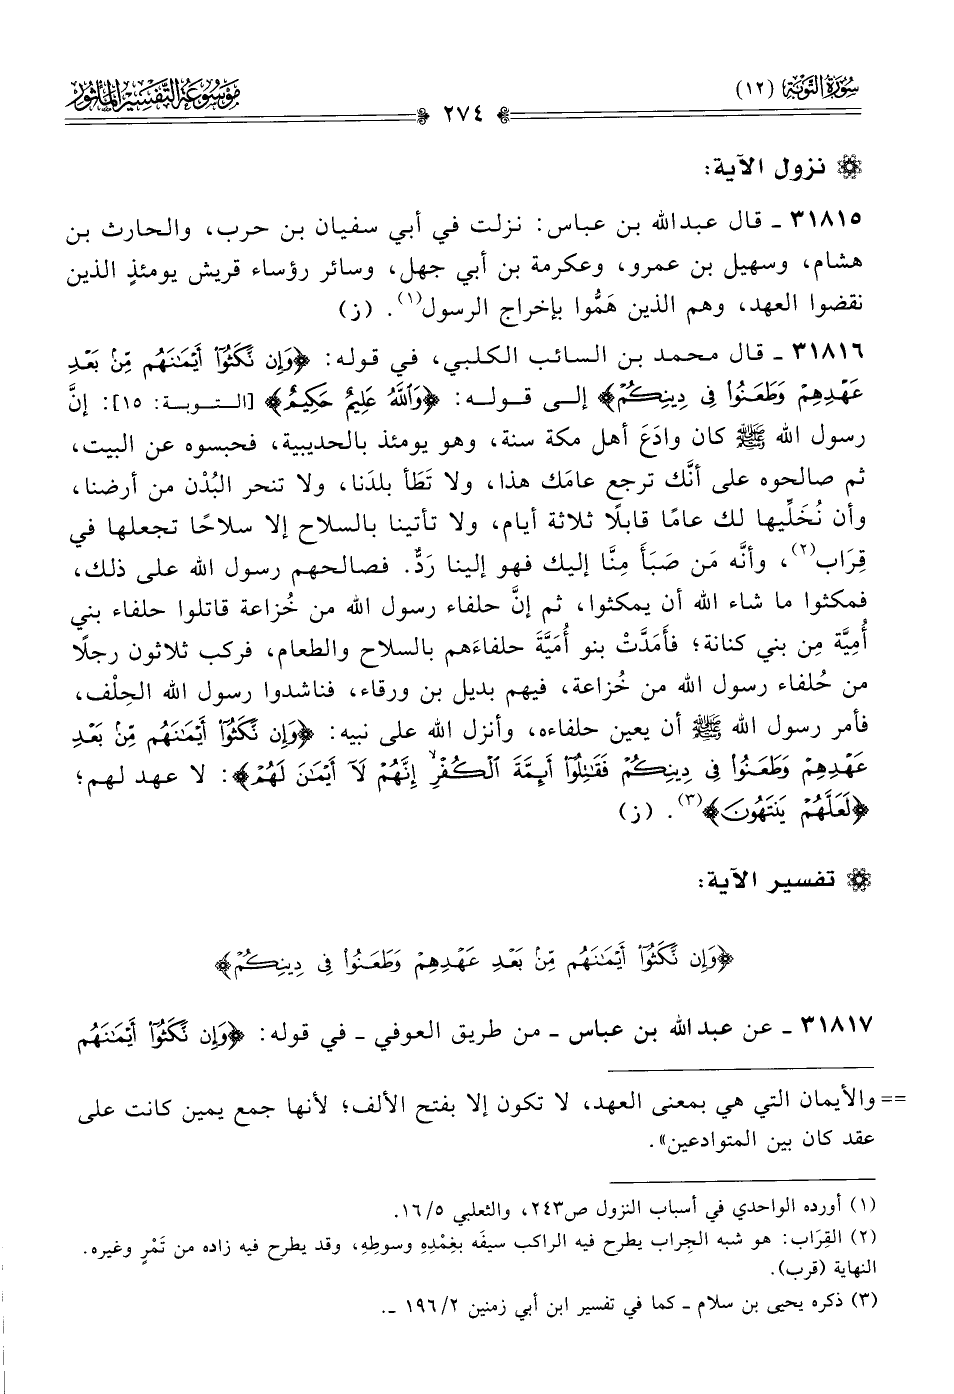 سُورَةُ التَّوْبَةِ (١٢)
مَوْسُوعَةُ التَّفْسِيرِ المَأْثُور
٢٧٤
نزول الآية:
٣١٨١٥ ـ قال عبدالله بن عباس: نزلت في أبي سفيان بن حرب، والحارث بن
هشام، وسهيل بن عمرو، وعكرمة بن أبي جهل، وسائر رؤساء قريش يومئذٍ الذين
نقضوا العهد، وهم الذين هَمُّوا بإخراج الرسول(١). (ز)
٣١٨١٦ ـ قال محمد بن السائب الكلبي، في قوله: ﴿وَإِن نَّكَثُوٓاْ أَيْمَٰنَهُم مِّنۢ بَعْدِ
عَهْدِهِمْ وَطَعَنُواْ فِى دِينِكُمْ﴾ إلى قوله: ﴿وَٱللَّهُ عَلِيمٌ حَكِيمٌ﴾ [التوبة: ١٥]: إنَّ
رسول الله ﷺ كان وادَعَ أهل مكة سنة، وهو يومئذ بالحديبية، فحبسوه عن البيت،
ثم صالحوه على أنَّك ترجع عامَك هذا، ولا تَطَأ بلدَنا، ولا تنحر البُدْن من أرضنا،
وأن نُخَلِّيها لك عامًا قابلًا ثلاثة أيام، ولا تأتينا بالسلاح إلا سلاحًا تجعلها في
قِرَاب(٢)، وأنَّه مَن صَبَأَ مِنَّا إليك فهو إلينا رَدٌّ. فصالحهم رسول الله على ذلك،
فمكثوا ما شاء الله أن يمكثوا، ثم إنَّ حلفاء رسول الله من خُزاعة قاتلوا حلفاء بني
أُميَّة مِن بني كنانة؛ فأَمَدَّتْ بنو أُمَيَّةَ حلفاءَهم بالسلاح والطعام، فركب ثلاثون رجلًا
من حُلفاء رسول الله من خُزاعة، فيهم بديل بن ورقاء، فناشدوا رسول الله الحِلْف،
فأمر رسول الله ﷺ أن يعين حلفاءه، وأنزل الله على نبيه: ﴿وَإِن نَّكَثُوٓاْ أَيْمَٰنَهُم مِّنۢ بَعْدِ
عَهْدِهِمْ وَطَعَنُواْ فِى دِينِكُمْ فَقَٰتِلُوٓاْ أَئِمَّةَ ٱلْكُفْرِۙ إِنَّهُمْ لَآ أَيْمَٰنَ لَهُمْ﴾: لا عهد لهم؛
﴿لَعَلَّهُمْ يَنتَهُونَ﴾(٣). (ز)
تفسير الآية:
﴿وَإِن نَّكَثُوٓاْ أَيْمَٰنَهُم مِّنۢ بَعْدِ عَهْدِهِمْ وَطَعَنُواْ فِى دِينِكُمْ﴾
٣١٨١٧ ـ عن عبدالله بن عباس ـ من طريق العوفي ـ في قوله: ﴿وَإِن نَّكَثُوٓاْ أَيْمَٰنَهُم
== والأيمان التي هي بمعنى العهد، لا تكون إلا بفتح الألف؛ لأنها جمع يمين كانت على
عقد كان بين المتوادعين».
(١) أورده الواحدي في أسباب النزول ص٢٤٣، والثعلبي ١٦/٥.
(٢) القِرَاب: هو شبه الجِراب يطرح فيه الراكب سيفَه بغِمْدِه وسوطِه، وقد يطرح فيه زاده من تَمْرٍ وغيره.
النهاية (قرب).
(٣) ذكره يحيى بن سلام ـ كما في تفسير ابن أبي زمنين ١٩٦/٢ ـ.